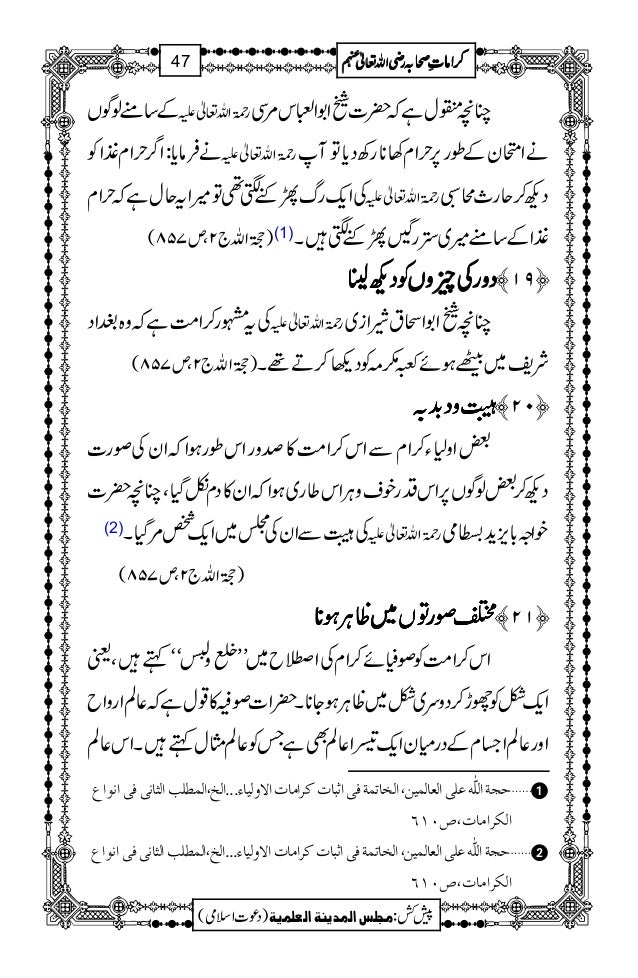 کراماتِ صحابہ رضی اللہ تعالیٰ عنہم
47
چنانچہ منقول ہے کہ حضرت شیخ ابوالعباس مرسی رحمۃ اللہ تعالیٰ علیہ کے سامنے لوگوں
نے امتحان کے طور پر حرام کھانا رکھ دیا تو آپ رحمۃ اللہ تعالیٰ علیہ نے فرمایا: اگر حرام غذا کو
دیکھ کر حارث محاسبی رحمۃ اللہ تعالیٰ علیہ کی ایک رگ پھڑکنے لگتی تھی تو میرا یہ حال ہے کہ حرام
غذا کے سامنے میری ستر رگیں پھڑکنے لگتی ہیں۔ (1) (حجۃ اللہ ج۲، ص ۸۵۷)
﴿۱۹﴾ دور کی چیزوں کو دیکھ لینا
چنانچہ شیخ ابو اسحاق شیرازی رحمۃ اللہ تعالیٰ علیہ کی یہ مشہور کرامت ہے کہ وہ بغداد
شریف میں بیٹھے ہوئے کعبہ مکرمہ کو دیکھا کرتے تھے۔ (حجۃ اللہ ج۲، ص ۸۵۷)
﴿۲۰﴾ ہیبت و دبدبہ
بعض اولیاء کرام سے اس کرامت کا صدور اس طور ہوا کہ ان کی صورت
دیکھ کر بعض لوگوں پر اس قدر خوف و ہراس طاری ہوا کہ ان کا دم نکل گیا، چنانچہ حضرت
خواجہ بایزید بسطامی رحمۃ اللہ تعالیٰ علیہ کی ہیبت سے ان کی مجلس میں ایک شخص مر گیا۔ (2)
(حجۃ اللہ ج۲، ص ۸۵۷)
﴿۲۱﴾ مختلف صورتوں میں ظاہر ہونا
اس کرامت کو صوفیائے کرام کی اصطلاح میں ’’خلع ولبس‘‘ کہتے ہیں، یعنی
ایک شکل کو چھوڑ کر دوسری شکل میں ظاہر ہو جانا۔ حضرات صوفیہ کا قول ہے کہ عالم ارواح
اور عالم اجسام کے درمیان ایک تیسرا عالم بھی ہے جس کو عالم مثال کہتے ہیں۔ اس عالم
1 ......حجة الله على العالمين، الخاتمة فى اثبات كرامات الاولياء...الخ، المطلب الثانى فى انواع
الكرامات، ص ٦١٠
2 ......حجة الله على العالمين، الخاتمة فى اثبات كرامات الاولياء...الخ، المطلب الثانى فى انواع
الكرامات، ص ٦١٠
پیش کش: مجلس المدینة العلمیة (دعوت اسلامی)